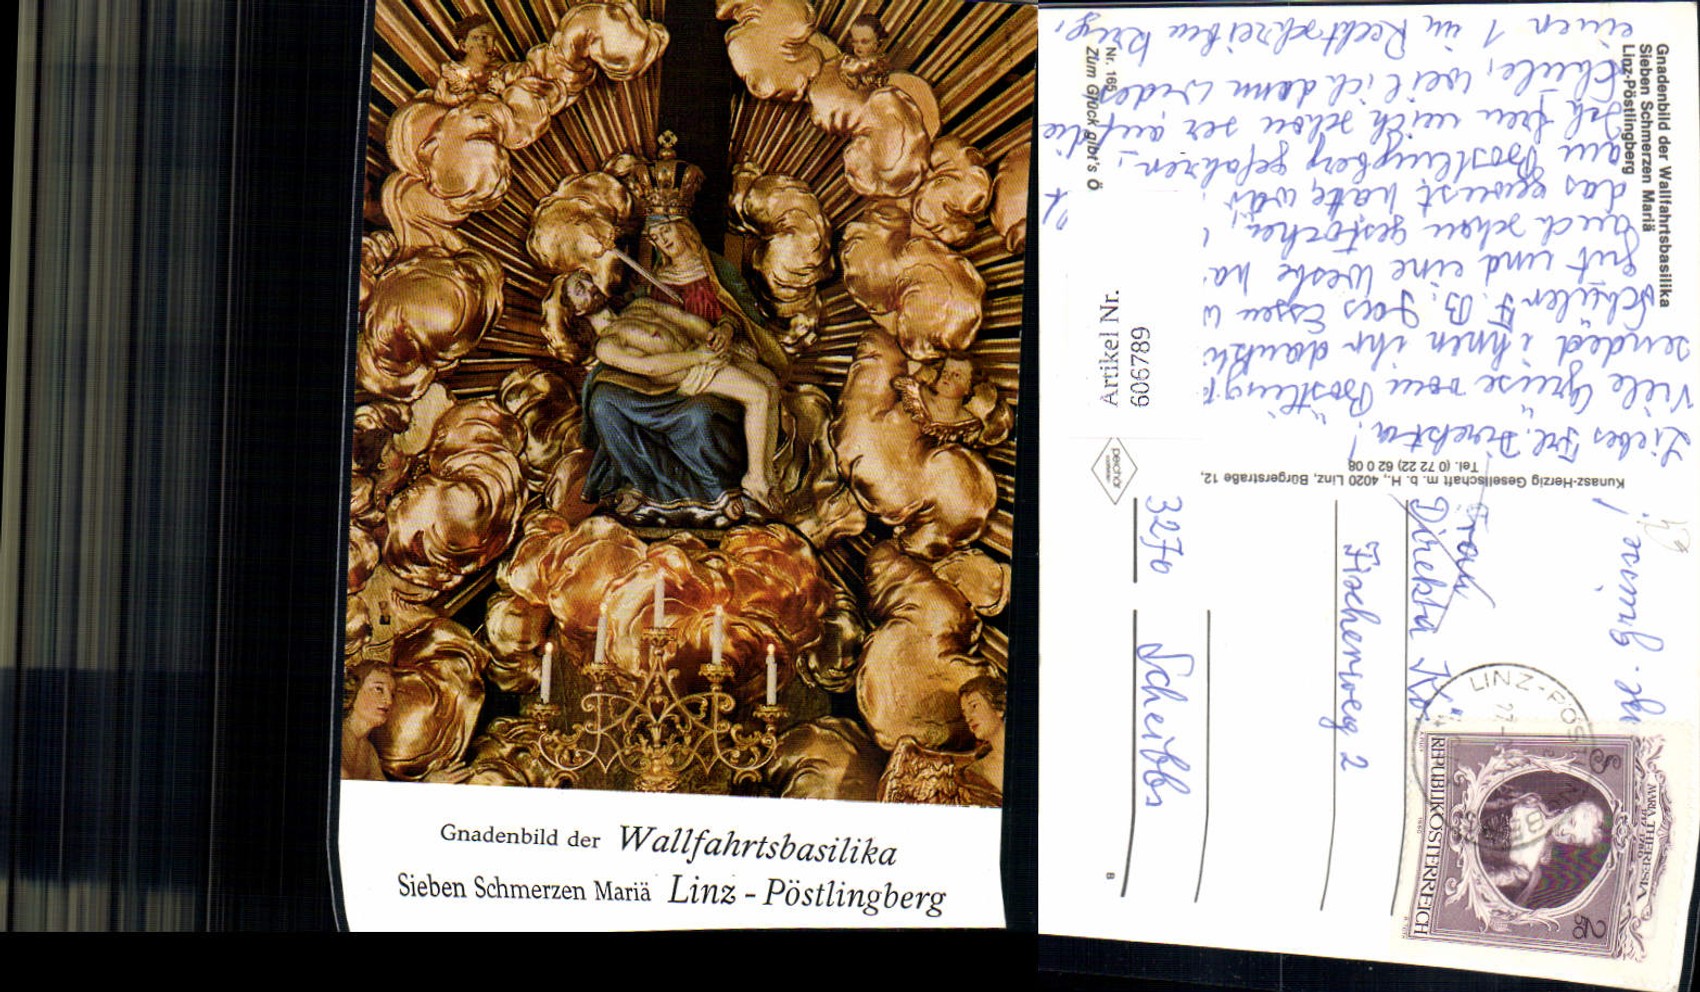 Gnadenbild der Wallfahrtsbasilika
Sieben Schmerzen Mariä Linz - Pöstlingberg
Gnadenbild der Wallfahrtsbasilika
Sieben Schmerzen Mariä
Linz-Pöstlingberg
Nr. 165
Zum Glück gibt's Ö
Artikel Nr.
606789
Kunasz-Herzig Gesellschaft m. b. H., 4020 Linz, Bürgerstraße 12,
Tel. (0 72 22) 62 0 08
Liebes Frl. Direktor!
Viele Grüse vom Pöstling
sended ihnen ihr dankb
Schüler F. B. Das Essen w
gut und eine Wespe ha
auch schon gestochen,
das gewust hatte, wår
am Pöstlingberg gefahren.
Ich freu mich schon ser auf die
Schule, weil ich dann wieder
einen 1 in Rechtschreiben krieg,
Frau
Direktor
Fischerweg 2
3270 Scheibbs
LINZ-PÖSTLINGBERG
MARIA THERESIA
1717-1780
REPUBLIK ÖSTERREICH
1980
250
B